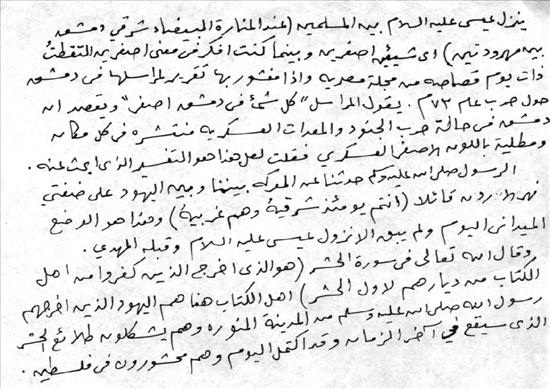 ينزل عيسى عليه السلام بين المسلمين (عند المنارة البيضاء شرقي دمشق
بين مهرودتين) اى شيئين اصفرين وبينما كنت افكر فى معنى اصفرين التقطت
ذات يوم قصاصه من مجلة مصريه واذا منشور بها تقرير لمراسلها فى دمشق
حول حرب عام ٧٣م . يقول المراسل "كل شئ فى دمشق اصفر" ويقصد ان
دمشق فى حالة حرب الجنود والمعدات العسكريه منتشره فى كل مكان
ومطلية باللون الاصفر العسكري فقلت لعل هذا هو التفسير الذى ابحث عنه .
الرسول صلى الله عليه وسلم حدثنا عن المعركه بيننا وبين اليهود على ضفتي
نهر الاردن قائلا (أنتم يومئذ شرقية وهم غربية) وهذا هو الوضع
الميدانى اليوم ولم يبق الا نزول عيسى عليه السلام وقبله المهدي .
وقال الله تعالى فى سورة الحشر (هو الذى اخرج الذين كفروا من اهل
الكتاب من ديارهم لاول الحشر) اهل الكتاب هنا هم اليهود الذين اخرجهم
رسول الله صلى الله عليه وسلم من المدينة المنوره وهم يشكلون طلائع الحشر
الذى سيقع في آخر الزمان وقد اكتمل اليوم وهم محشورون فى فلسطين .